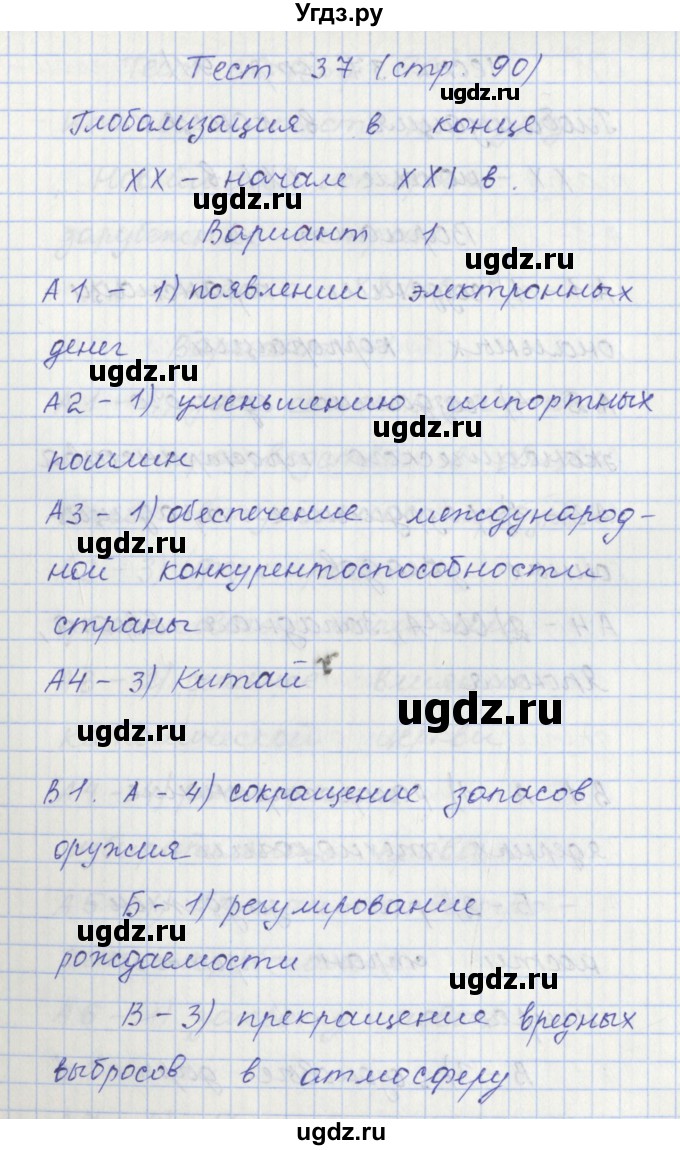 Угдз.ру
Тест 37 (стр 90)
ugdz.ru
Глобализация в конце
XX - начале XXI в.
ugdz.ru
Вариант 1
ugdz.ru
А1 - 1) появлении электронных
денег
ugdz.ru
А2 - 1) уменьшению импортных
ugdz.ru
пошлин
А3 - 1) обеспечение международ-
ugdz.ru
ной конкурентоспособности
страны
А4 - 3) Китай
ugdz.ru
ugdz.ru
В1. А - 4) сокращение запасов
оружия
Б - 1) регулирование
ugdz.ru
рождаемости
ugdz.ru
В - 3) прекращение вредных
выбросов в атмосферу
ugdz.ru